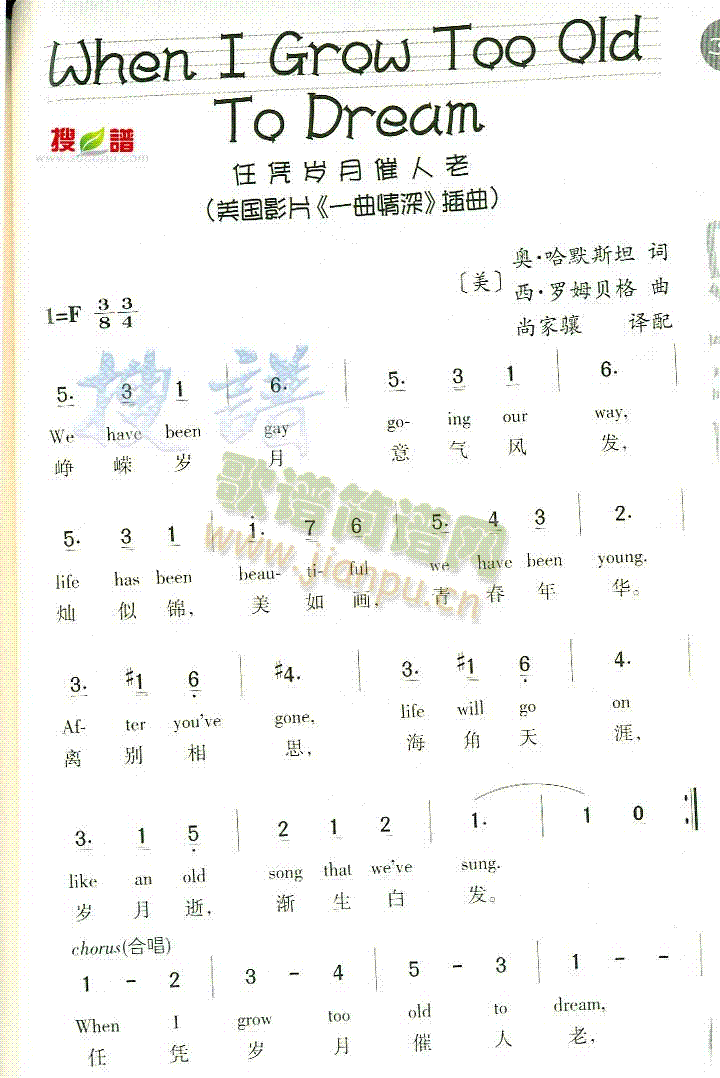 When I Grow Too Old
To Dream
搜 譜
www.sooopu.com
任凭岁月催人老
（美国影片《一曲情深》插曲）
〔美〕 奥·哈默斯坦 词
西·罗姆贝格 曲
尚家骧 译配
1=F 3/8 3/4
搜 譜
5. 3 1 | 6. | 5. 3 1 | 6. |
We have been gay going our way,
峥 嵘 岁 月 意 气 风 发,
歌谱简谱网
www.jianpu.cn
5. 3 1 | 1. 7 6 | 5. 4 3 | 2. |
life has been beau- ti- ful we have been young.
灿 似 锦, 美 如 画, 青 春 年 华。
3. #1 6 | #4. | 3. #1 6 | 4. |
Af- ter you've gone, life will go on
离 别 相 思, 海 角 天 涯,
3. 1 5 | 2 1 2 | 1. | 1 0 :||
like an old song that we've sung.
岁 月 逝, 渐 生 白 发。
chorus(合唱)
1 - 2 | 3 - 4 | 5 - 3 | 1 - - |
When I grow too old to dream,
任 凭 岁 月 催 人 老,